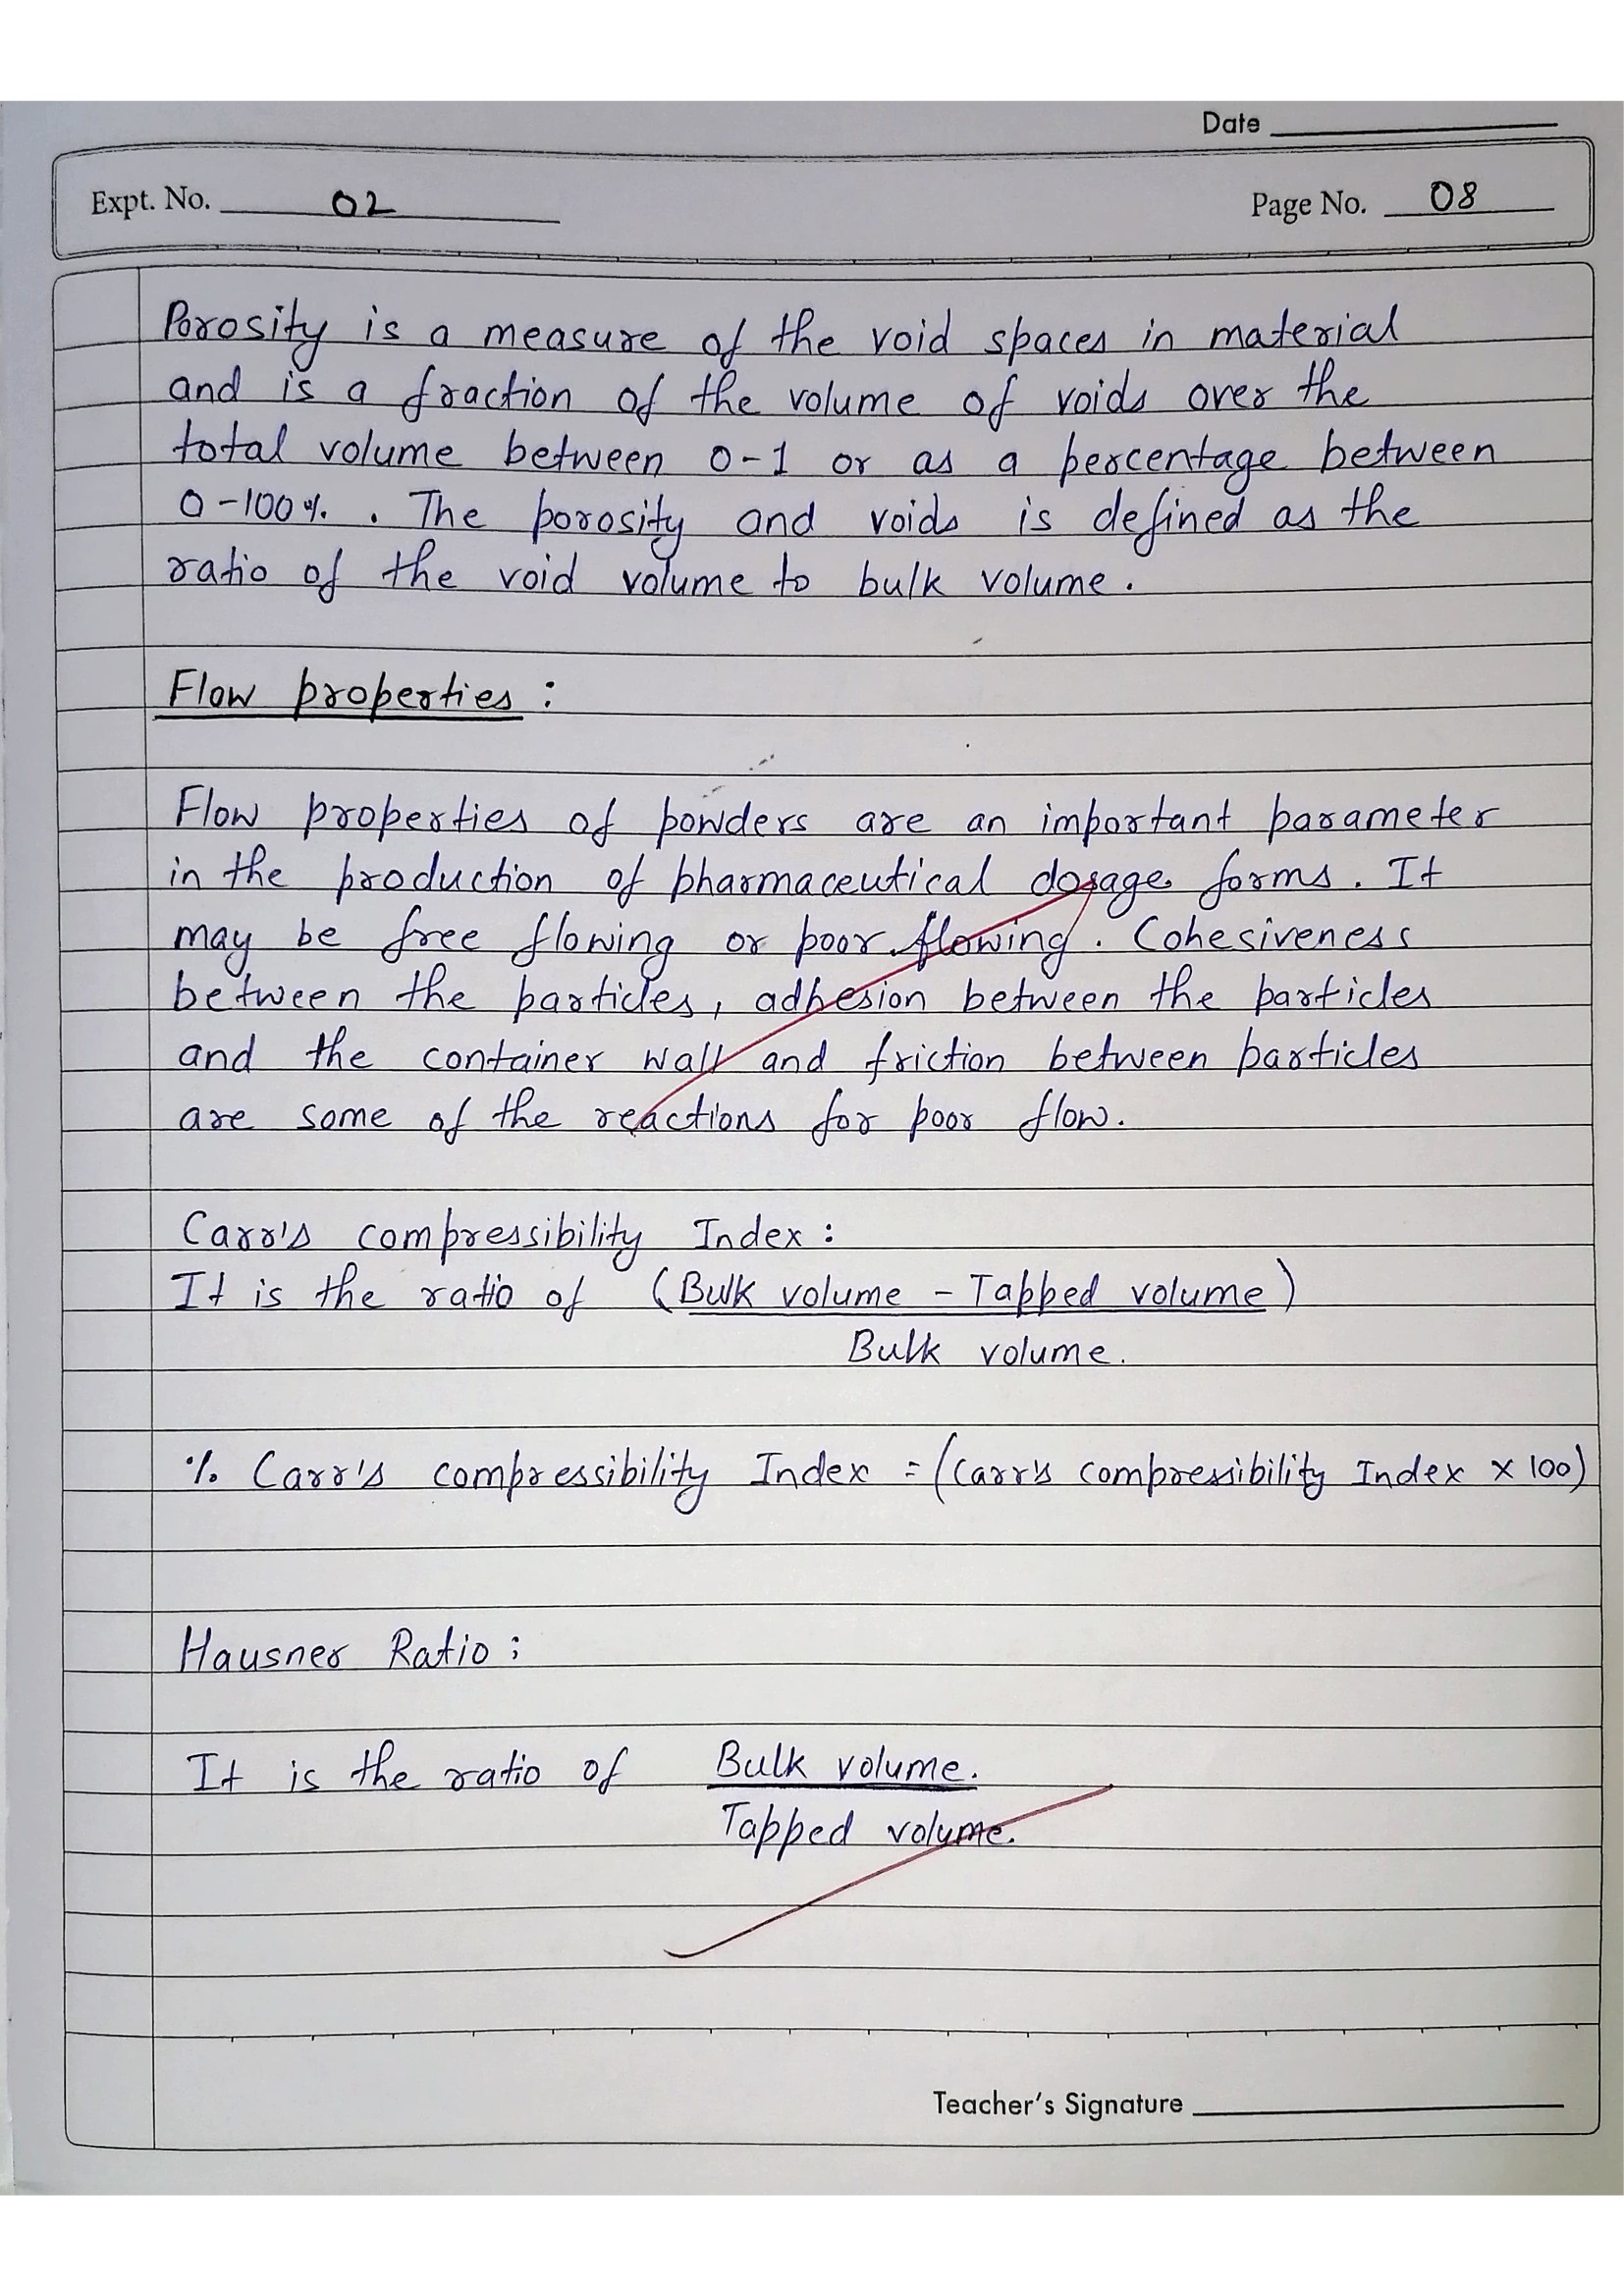 Date
Expt. No. 02
Page No. 08
Porosity is a measure of the void spaces in material
and is a fraction of the volume of voids over the
total volume between 0-1 or as a percentage between
0-100%. The porosity and voids is defined as the
ratio of the void volume to bulk volume.
Flow properties :
Flow properties of powders are an important parameter
in the production of pharmaceutical dosage forms. It
may be free flowing or poor flowing. Cohesiveness
between the particles, adhesion between the particles
and the container wall and friction between particles
are some of the reactions for poor flow.
Carr's compressibility Index :
It is the ratio of (Bulk volume - Tapped volume)
Bulk volume.
% Carr's compressibility Index = (Carr's compressibility Index x 100)
Hausner Ratio :
It is the ratio of Bulk volume.
Tapped volume.
Teacher's Signature